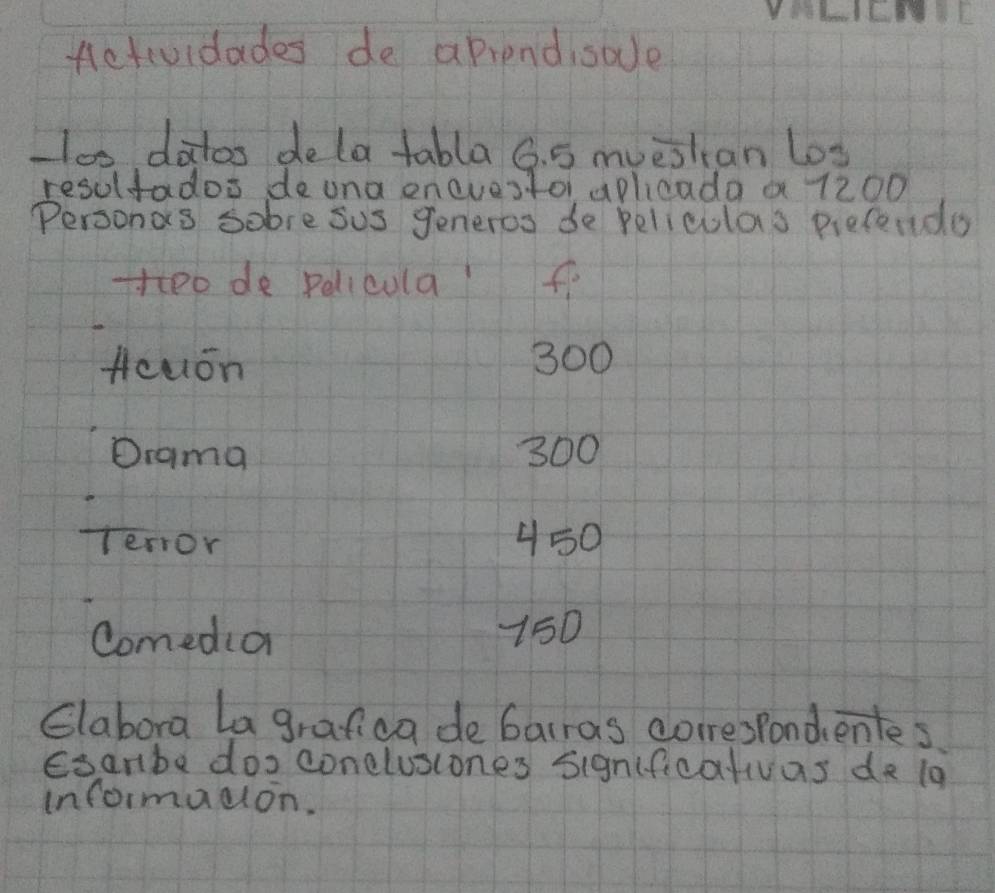 VALIENTE
Actividades de aprendisaje
-los datos de la tabla 6.5 muestran los
resultados de una encuesta aplicada a 1200
Personas sobre sus generos de peliculas preferido
tipo de pelicula fi
Acción 300
Drama 300
Terror 450
Comedia 150
Elabora La grafica de barras correspondientes.
Escribe dos conclusiones significativas de la
información.